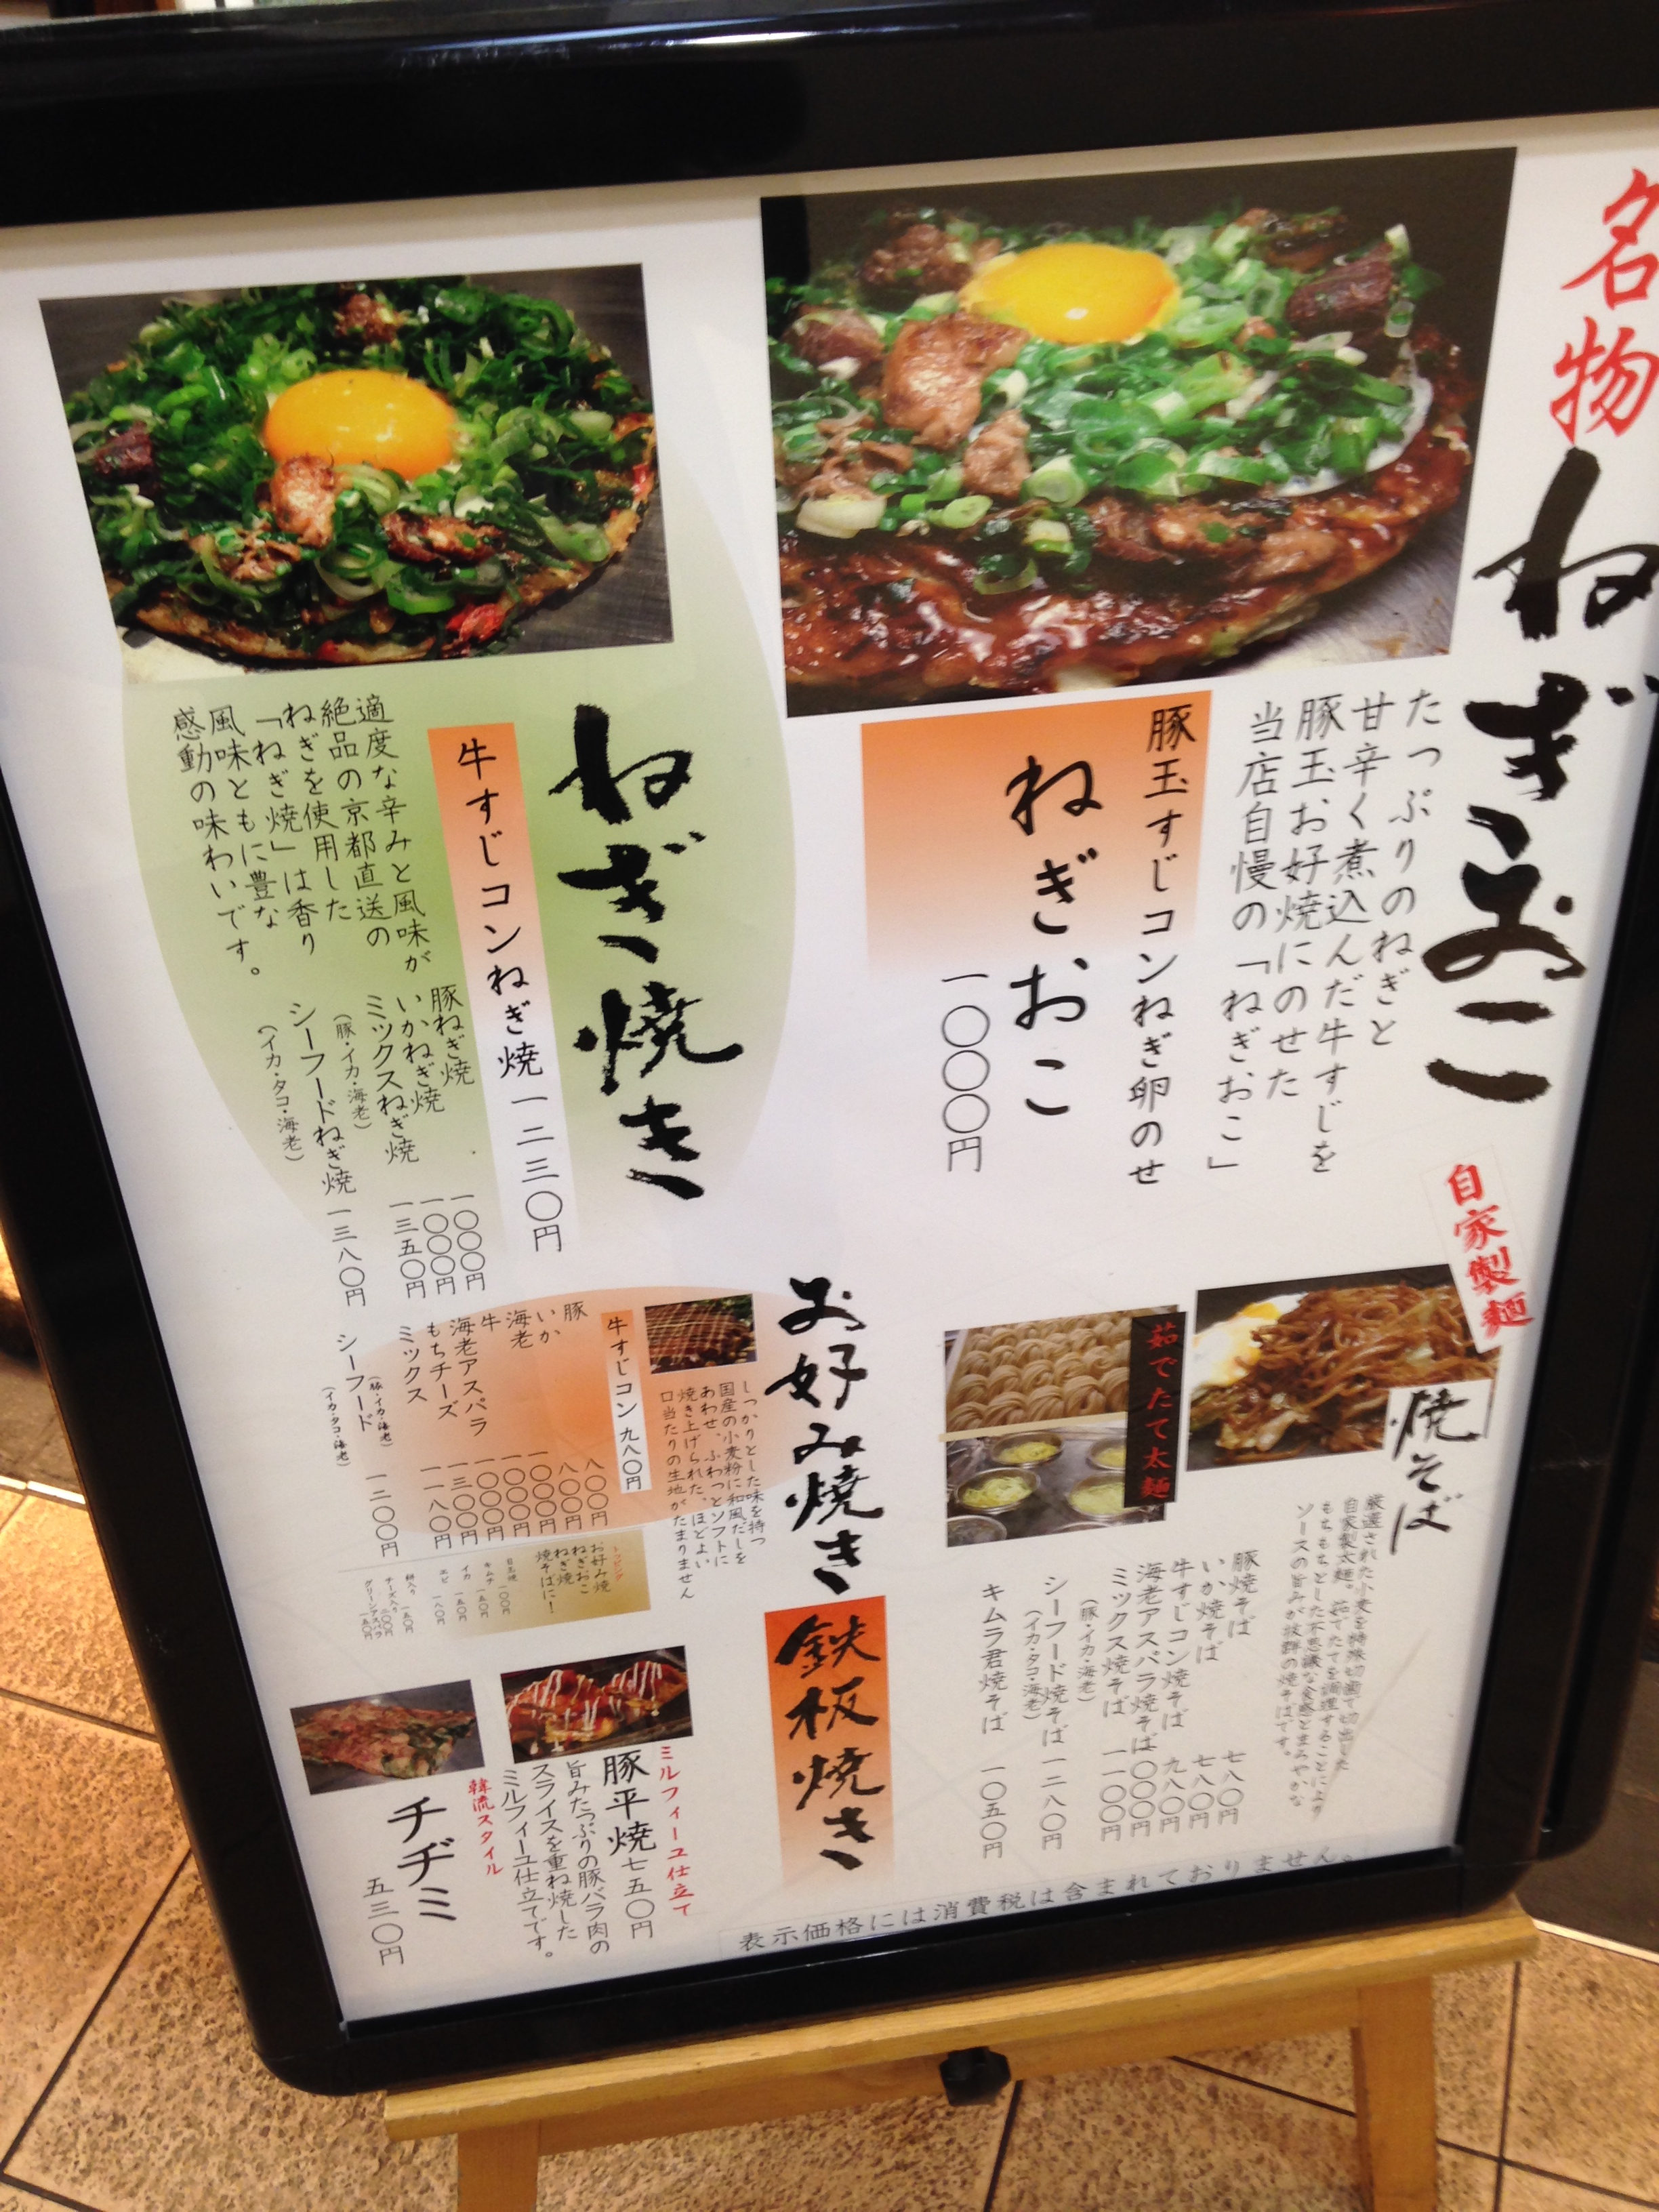 名物
ねぎおこ
たっぷりのねぎと
甘辛く煮込んだ牛すじを
豚玉お好焼にのせた
当店自慢の「ねぎおこ」
豚玉すじコンねぎ卵のせ
ねぎおこ
一〇〇〇円
ねぎ焼き
牛すじコンねぎ焼 一二三〇円
適度な辛みと風味が
絶品の京都直送の
ねぎを使用した
「ねぎ焼」は香り
風味ともに豊な
感動の味わいです。
豚ねぎ焼 一〇〇〇円
いかねぎ焼 一〇〇〇円
ミックスねぎ焼 一三五〇円
（豚・イカ・海老）
シーフードねぎ焼 一三八〇円
（イカ・タコ・海老）
自家製麺
焼そば
茹でたて太麺
厳選された小麦を特殊切歯で切出した
自家製太麺。茹でたてを調理することにより
もちもちとした不思議な食感とまろやかな
ソースの旨みが抜群の焼そばです。
豚焼そば 七八〇円
いか焼そば 七八〇円
牛すじコン焼そば 九八〇円
海老アスパラ焼そば 一〇〇〇円
ミックス焼そば 一一〇〇円
（豚・イカ・海老）
シーフード焼そば 一二八〇円
（イカ・タコ・海老）
キムラ君焼そば 一〇五〇円
お好み焼き
しっかりとした味を持つ
国産の小麦粉に和風だしを
あわせ、ふわっとソフトに
焼き上げられた、ほどよい
口当たりの生地がたまりません
牛すじコン 九八〇円
豚 八〇〇円
いか 八〇〇円
海老 一〇〇〇円
牛 一〇〇〇円
海老アスパラ 一〇〇〇円
もちチーズ 一三〇〇円
ミックス 一一八〇円
（豚・イカ・海老）
シーフード 一二〇〇円
（イカ・タコ・海老）
トッピング
お好み焼
ねぎおこ
ねぎ焼
焼そばに！
目玉焼 一〇〇円
キムチ 一五〇円
イカ 一五〇円
エビ 一八〇円
餅入り 一五〇円
チーズ入り 二〇〇円
グリーンアスパラ 一五〇円
鉄板焼き
ミルフィーユ仕立て
豚平焼 七五〇円
旨みたっぷりの豚バラ肉の
スライスを重ね焼した
ミルフィーユ仕立てです。
韓流スタイル
チヂミ
五三〇円
表示価格には消費税は含まれておりません。